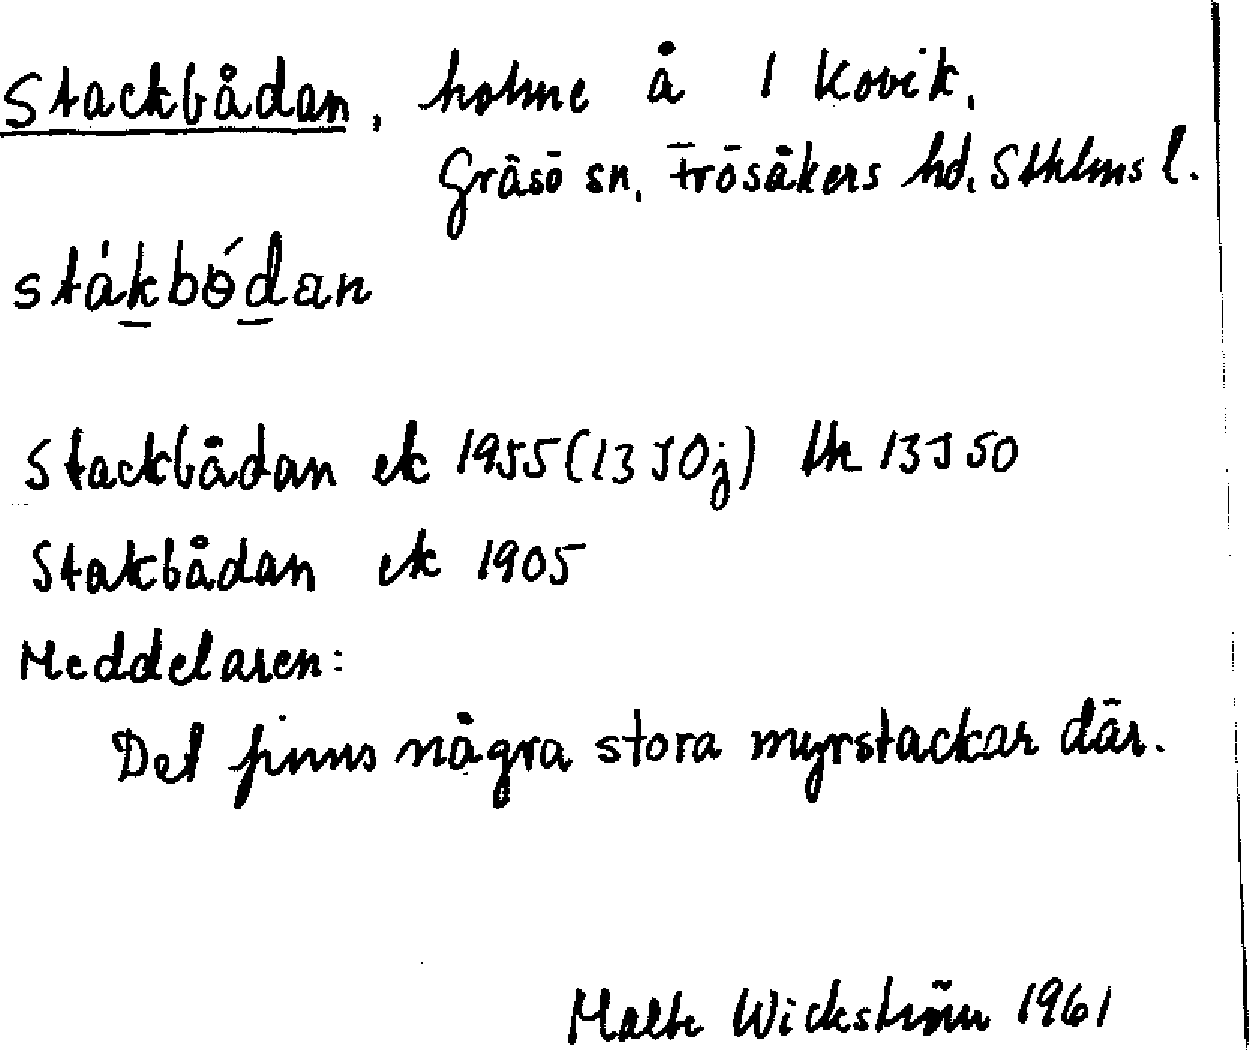 Stackbådan, holme å 1 Kovik,
Gräsö sn, Frösåkers hd, Sthlms l.
stákbódan
Stackbådan ek 1955 (13 J 0j) tk 13 J 50
Stakbådan ek 1905
Meddelaren:
Det finns några stora myrstackar där.
Malte Wickström 1961